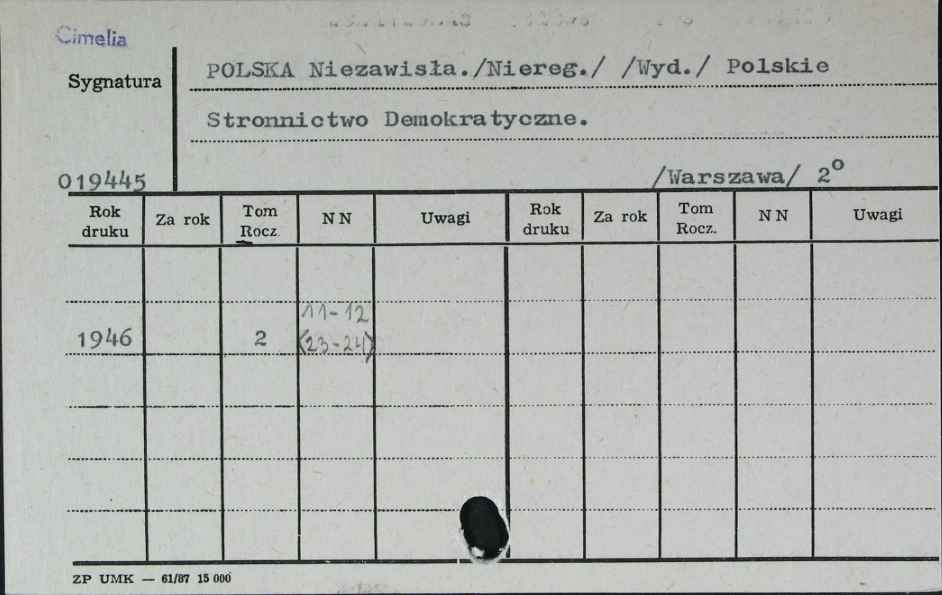 Cimelia
Sygnatura
POLSKA Niezawisła./Niereg./ /Wyd./ Polskie
Stronnictwo Demokratyczne.
019445
/Warszawa/ 2º
Rok druku Za rok Tom Rocz N N Uwagi Rok druku Za rok Tom Rocz. N N Uwagi
11-12
1946 2 (23-24)
ZP UMK — 61/87 15 000